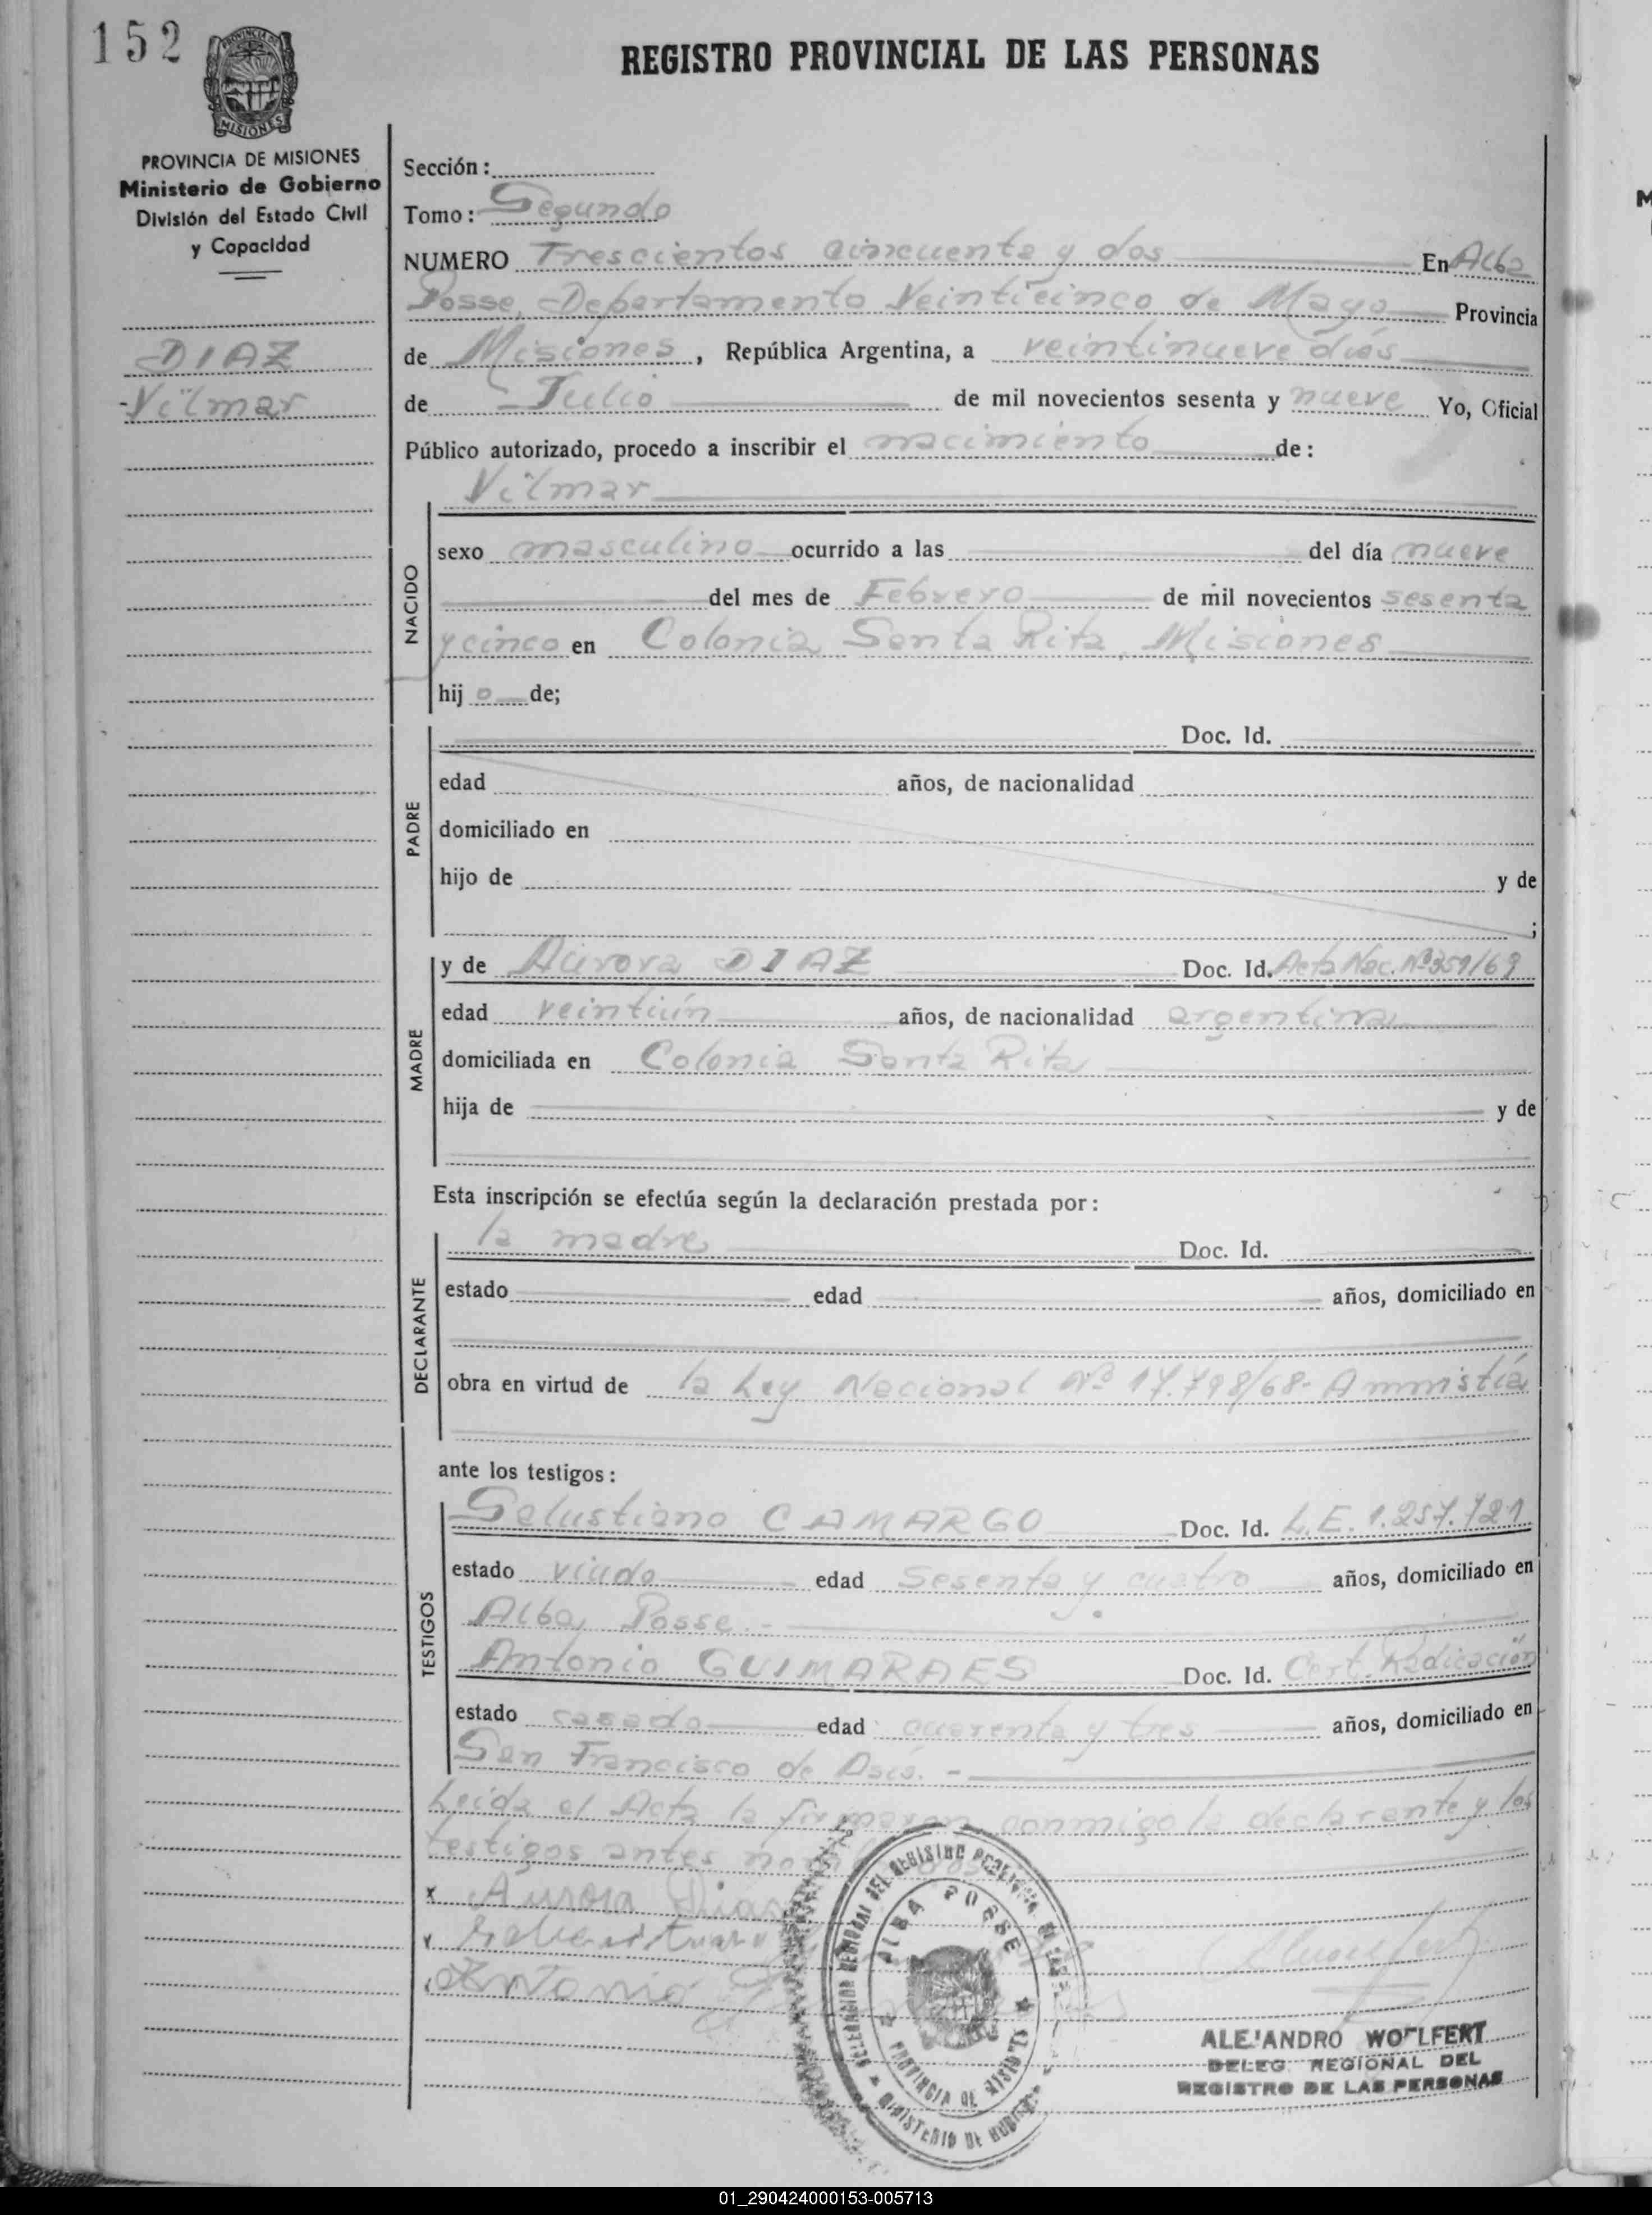 152
REGISTRO PROVINCIAL DE LAS PERSONAS
MISIONES
PROVINCIA DE MISIONES
Ministerio de Gobierno
División del Estado Civil
y Capacidad
DIAZ
Vilmar
Sección:
Tomo: Segundo
NUMERO Trescientos cincuenta y dos En Alba
Posse, Departamento Veinticinco de Mayo Provincia
de Misiones, República Argentina, a veintinueve días
de Julio de mil novecientos sesenta y nueve Yo, Oficial
Público autorizado, procedo a inscribir el nacimiento de:
Vilmar
NACIDO
sexo masculino ocurrido a las del día nueve
del mes de Febrero de mil novecientos sesenta
y cinco en Colonia Santa Rita, Misiones
hij o de;
PADRE
Doc. Id.
edad años, de nacionalidad
domiciliado en
hijo de y de
;
MADRE
y de Aurora DIAZ Doc. Id. Acta Nac. Nº 351/69
edad veintiún años, de nacionalidad argentina
domiciliada en Colonia Santa Rita
hija de y de
Esta inscripción se efectúa según la declaración prestada por:
DECLARANTE
la madre Doc. Id.
estado edad años, domiciliado en
obra en virtud de la Ley Nacional Nº 17.798/68- Ammistía
ante los testigos:
TESTIGOS
Salustiano CAMARGO Doc. Id. L.E. 1.257.721
estado viudo edad sesenta y cuatro años, domiciliado en
Alba Posse.-
Antonio GUIMARAES Doc. Id. Cert. Radicación
estado casado edad cuarenta y tres años, domiciliado en
San Francisco de Asís. -
Leida el Acta la firmaron conmigo la declarante y los
testigos antes
x Aurora Dias
Antonio
DELEGACION REGIONAL DEL REGISTRO PROVINCIAL DE LAS
ALBA POSSE
PROVINCIA DE MISIONES
MINISTERIO DE GOBIERNO
ALEJANDRO WOLFERT
DELEG. REGIONAL DEL
REGISTRO DE LAS PERSONAS
01_290424000153-005713